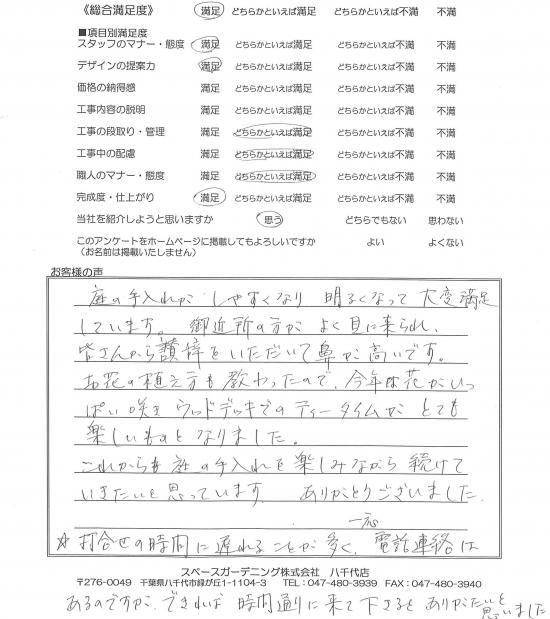 《総合満足度》 満足 どちらかといえば満足 どちらかといえば不満 不満
■項目別満足度
スタッフのマナー・態度 満足 どちらかといえば満足 どちらかといえば不満 不満
デザインの提案力 満足 どちらかといえば満足 どちらかといえば不満 不満
価格の納得感 満足 どちらかといえば満足 どちらかといえば不満 不満
工事内容の説明 満足 どちらかといえば満足 どちらかといえば不満 不満
工事の段取り・管理 満足 どちらかといえば満足 どちらかといえば不満 不満
工事中の配慮 満足 どちらかといえば満足 どちらかといえば不満 不満
職人のマナー・態度 満足 どちらかといえば満足 どちらかといえば不満 不満
完成度・仕上がり 満足 どちらかといえば満足 どちらかといえば不満 不満
当社を紹介しようと思いますか 思う どちらでもない 思わない
このアンケートをホームページに掲載してもよろしいですか よい よくない
(お名前は掲載いたしません)
お客様の声
庭の手入れが しやすくなり 明るくなって 大変満足
しています。 御近所の方が よく見に来られ、
皆さんから讃辞をいただいて鼻が高いです。
お花の植え方も教わったので、今年は花がいっ
ぱい咲き ウッドデッキでのティータイムが とても
楽しいものとなりました。
これからも庭の手入れを楽しみながら続けて
いきたいと思っています ありがとうございました。
☆ 打合せの時間に遅れることが多く、一応 電話連絡は
スペースガーデニング株式会社 八千代店
〒276-0049 千葉県八千代市緑が丘1-1104-3 TEL:047-480-3939 FAX:047-480-3940
あるのですが、できれば 時間通りに来て下さると ありがたいと
思いました